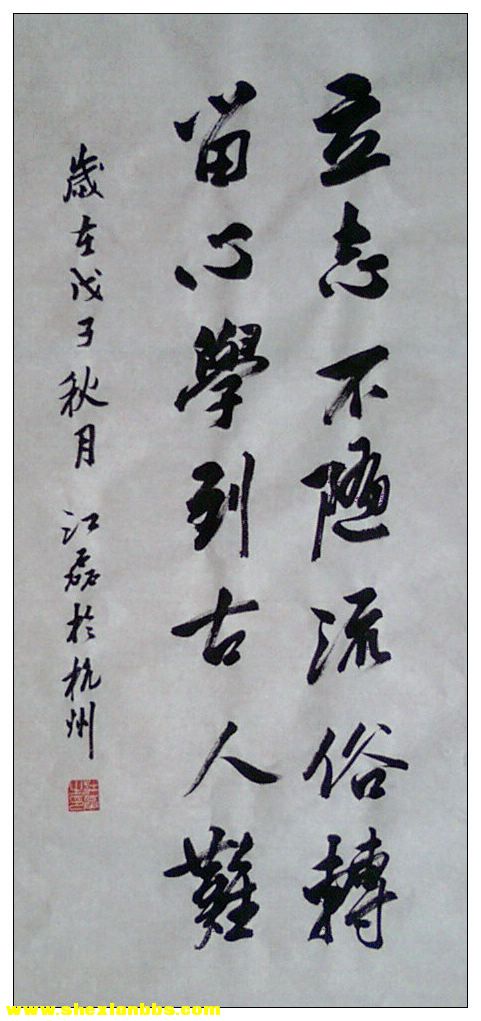 立志不随流俗轉
留心學到古人難
歲在戊子秋月 江磊於杭州
www.shexianbbs.com